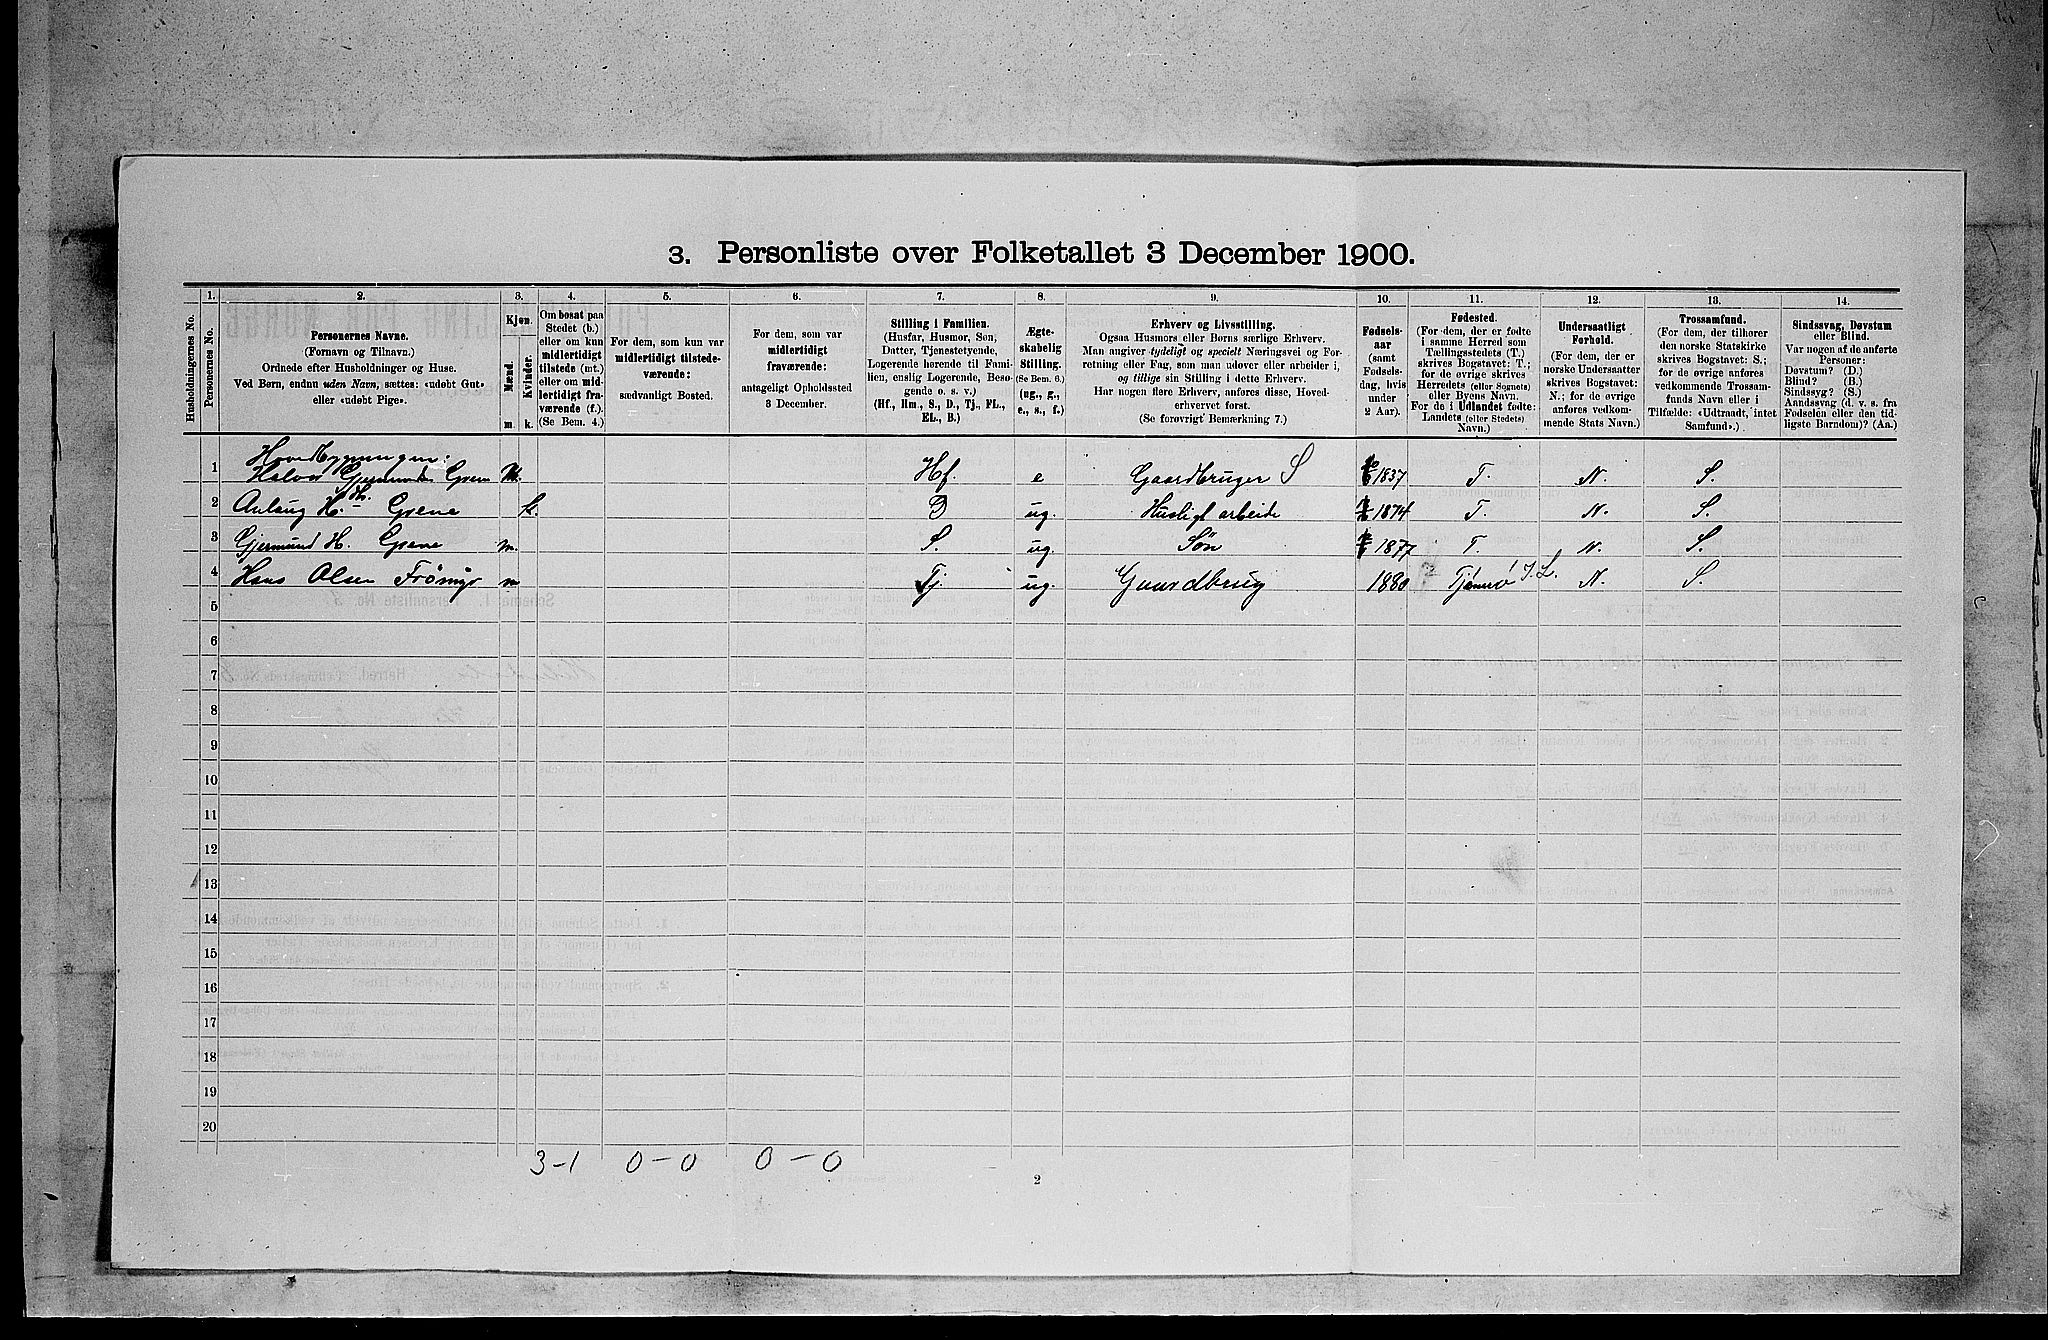 3. Personliste over Folketallet 3 December 1900.
1. 2. 3. 4. 5. 6. 7. 8. 9. 10. 11. 12. 13. 14.
Husholdningernes No.
Personernes No.
Personernes Navne.
(Fornavn og Tilnavn.)
Ordnede efter Husholdninger og Huse.
Ved Børn, endnu uden Navn, sættes: «udøbt Gut»
eller «udøbt Pige».
Kjøn.
Mænd.
Kvinder.
m. k.
Om bosat paa
Stedet (b.)
eller om kun
midlertidigt
tilstede (mt.)
eller om mid-
lertidigt fra-
værende (f.).
(Se Bem. 4.)
For dem, som kun var
midlertidigt tilstede-
værende:
sædvanligt Bosted.
For dem, som var
midlertidigt
fraværende:
antageligt Opholdssted
3 December.
Stilling i Familien.
(Husfar, Husmor, Søn,
Datter, Tjenestetyende,
Logerende hørende til Fami-
lien, enslig Logerende, Besø-
gende o. s. v.)
(Hf., Hm., S., D., Tj., FL.,
EL., B.)
Ægte-
skabelig
Stilling.
(Se Bem. 6.)
(ug., g.,
e., s., f.)
Erhverv og Livsstilling.
Ogsaa Husmors eller Børns særlige Erhverv.
Man angiver tydeligt og specielt Næringsvei og For-
retning eller Fag, som man udover eller arbeider i,
og tillige sin Stilling i dette Erhverv.
Har nogen flere Erhverv, anføres disse, Hoved-
erhvervet først.
(Se forøvrigt Bemærkning 7.)
Fødsels-
aar
(samt
Fødsels-
dag, hvis
under
2 Aar).
Fødested.
(For dem, der er fødte
i samme Herred som
Tællingsstedets (T.)
skrives Bogstavet: T.;
for de øvrige skrives
Herredets (eller Sognets)
eller Byens Navn.
For de i Udlandet fødte:
Landets (eller Stedets)
Navn.)
Undersaatligt
Forhold.
(For dem, der er
norske Undersaatter
skrives Bogstavet:
N.; for de øvrige
anføres vedkom-
mende Stats Navn.)
Trossamfund.
(For dem, der tilhører
den norske Statskirke
skrives Bogstavet: S.;
for de øvrige anføres
vedkommende Trossam-
funds Navn eller i
Tilfælde: «Udtraadt, intet
Samfund».)
Sindssvag, Døvstum
eller Blind.
Var nogen af de anførte
Personer:
Døvstum? (D.)
Blind? (B.)
Sindssyg? (S.)
Aandssvag (d. v. s. fra
Fødselen eller den tid-
ligste Barndom)? (Aa.)
Hovedbygningen:
1 Halvor Gjermundsen Grene m. Hf. e Gaardbruger S 1837 T. N. S.
2 Anlaug H. dtr. Grene k. D ug. Husligt arbeide 1874 T. N. S.
3 Gjermund H. Grene m. S. ug. Søn 1877 T. N. S.
4 Hans Olsen m Tj ug. Gaardbrug 1880 N. S.
5
6
7
8
9
10
11
12
13
14
15
16
17
18
19
20
3-1 0-0 0-0
2